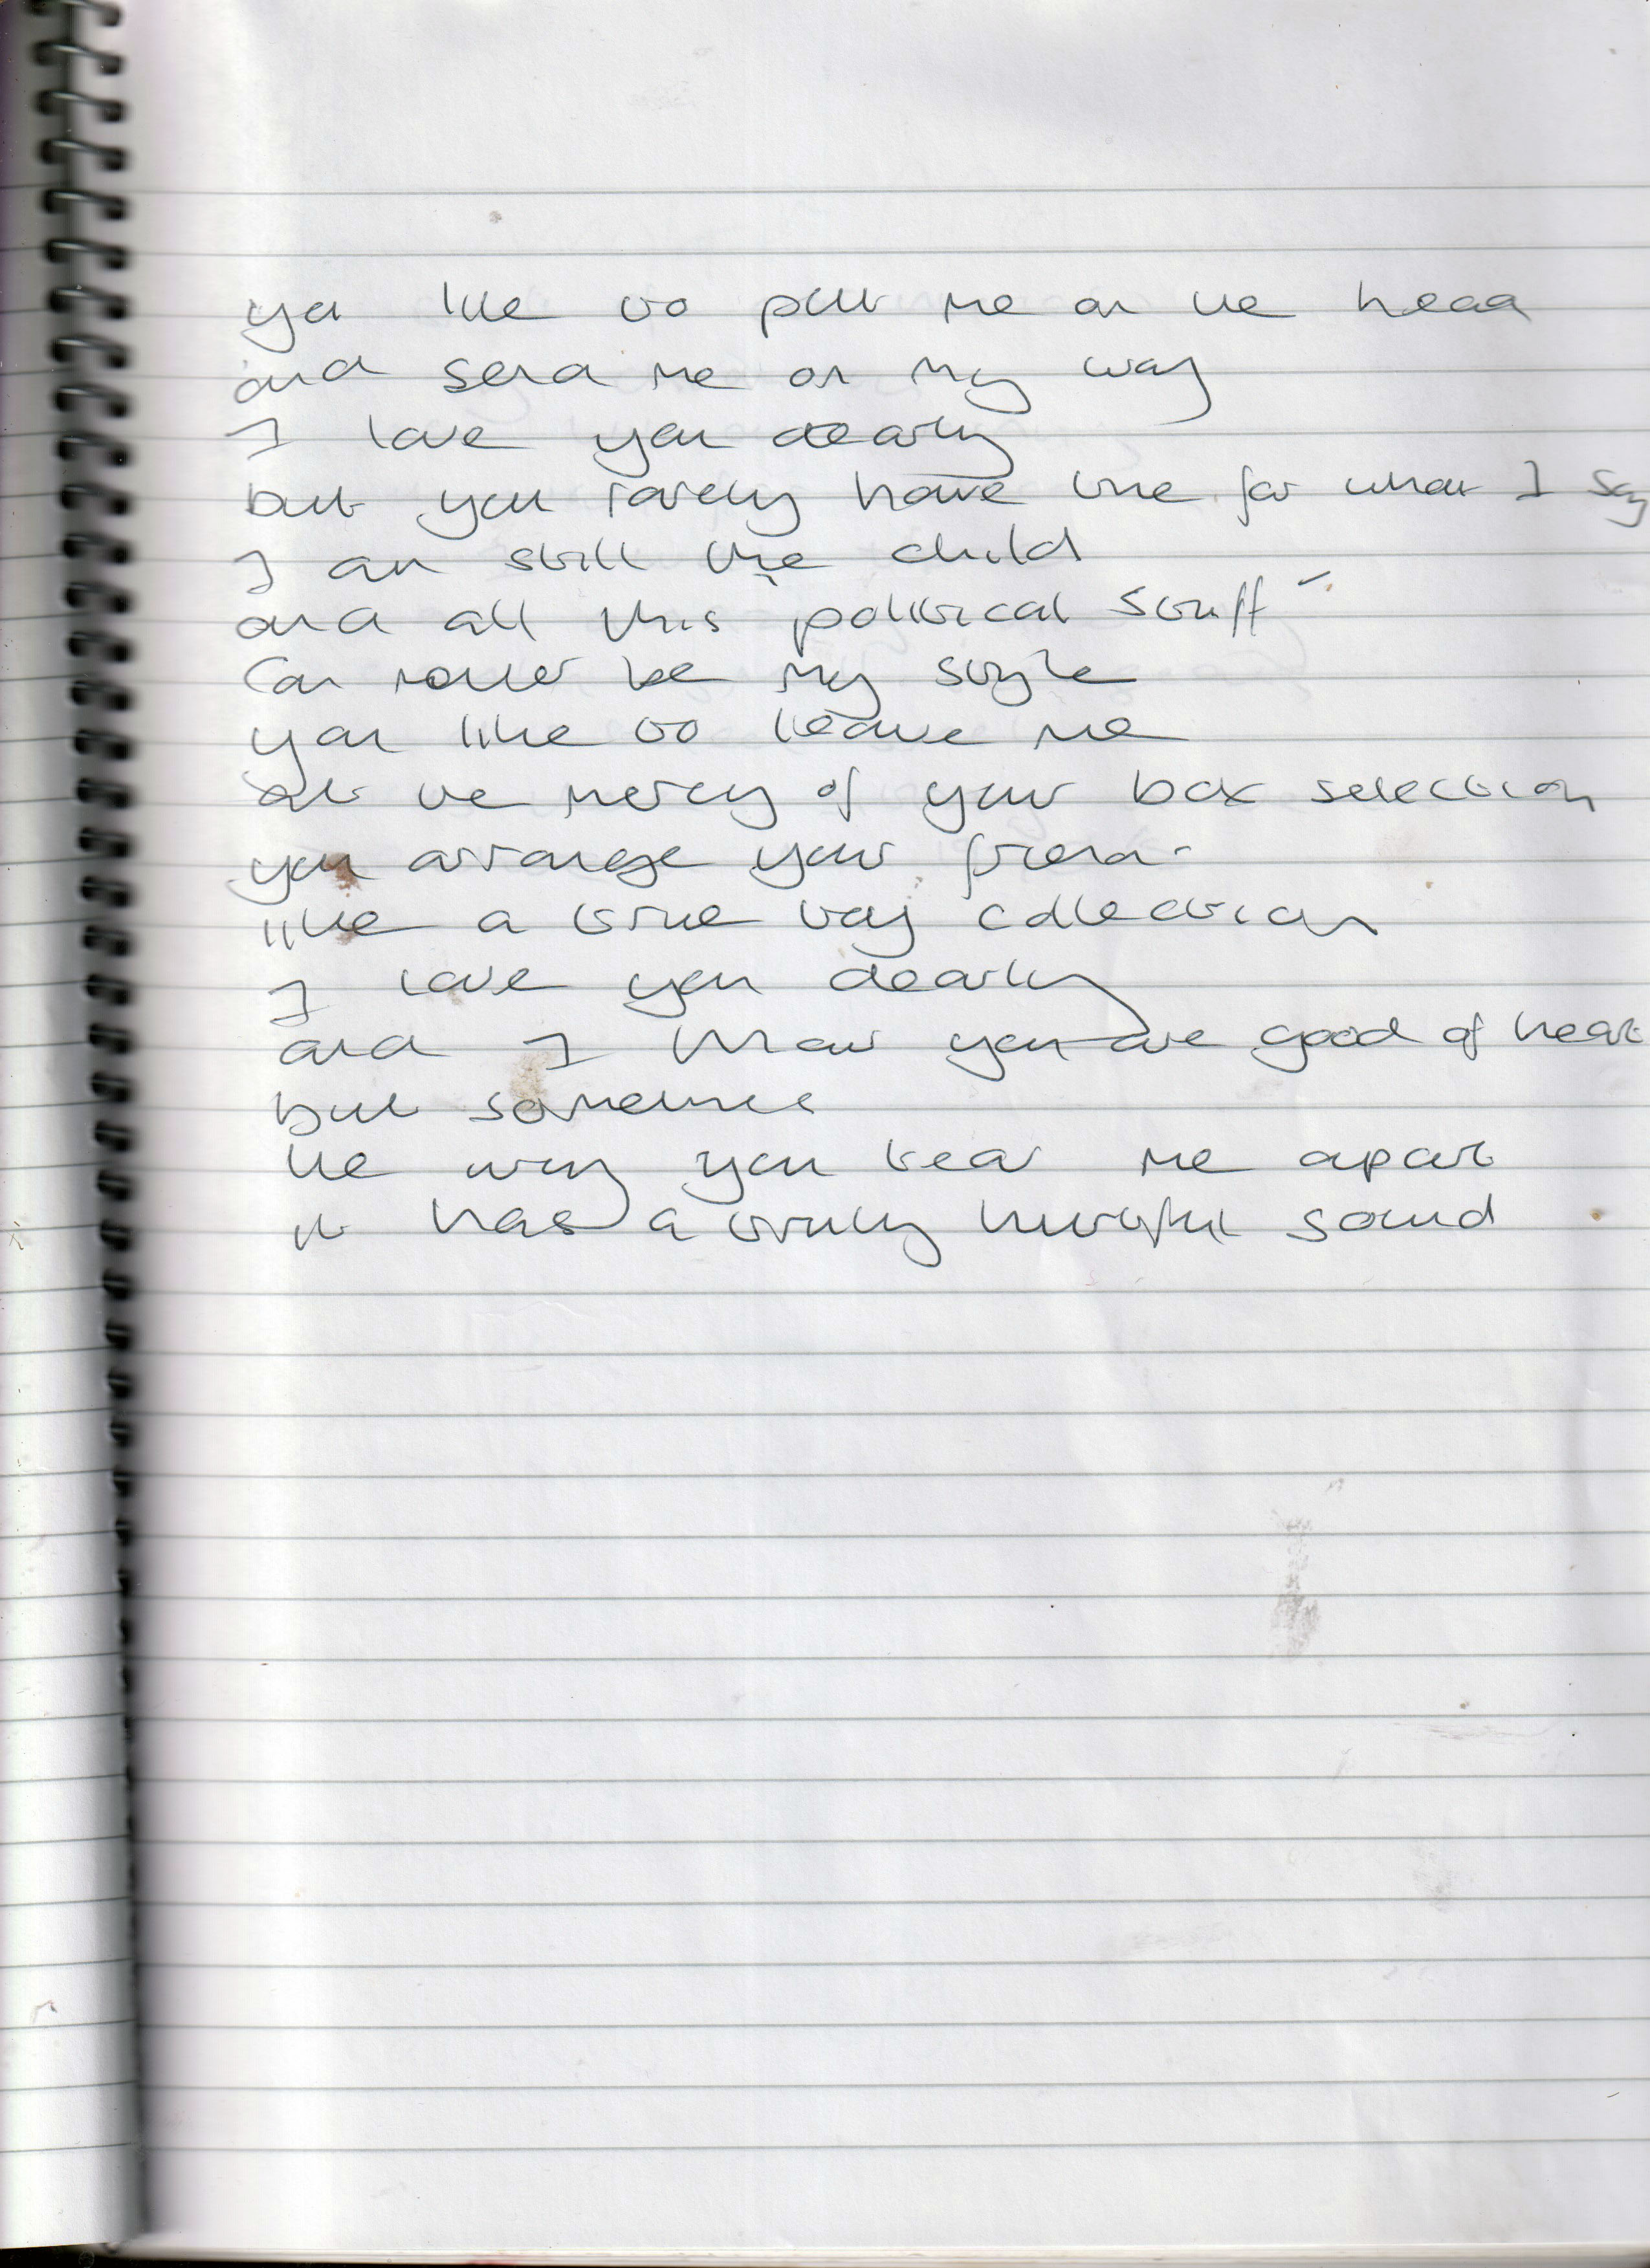 you like to pat me on the head
and send me on my way
I love you dearly
but you rarely have time for what I say
I am still the child
and all this political stuff
Can never be my style
you like to leave me
at the mercy of your box selection
you arrange your friend
like a time toy collection
I love you dearly
and I know you are good of heart
but sometimes
the way you tear me apart
it has a truly hurtful sound